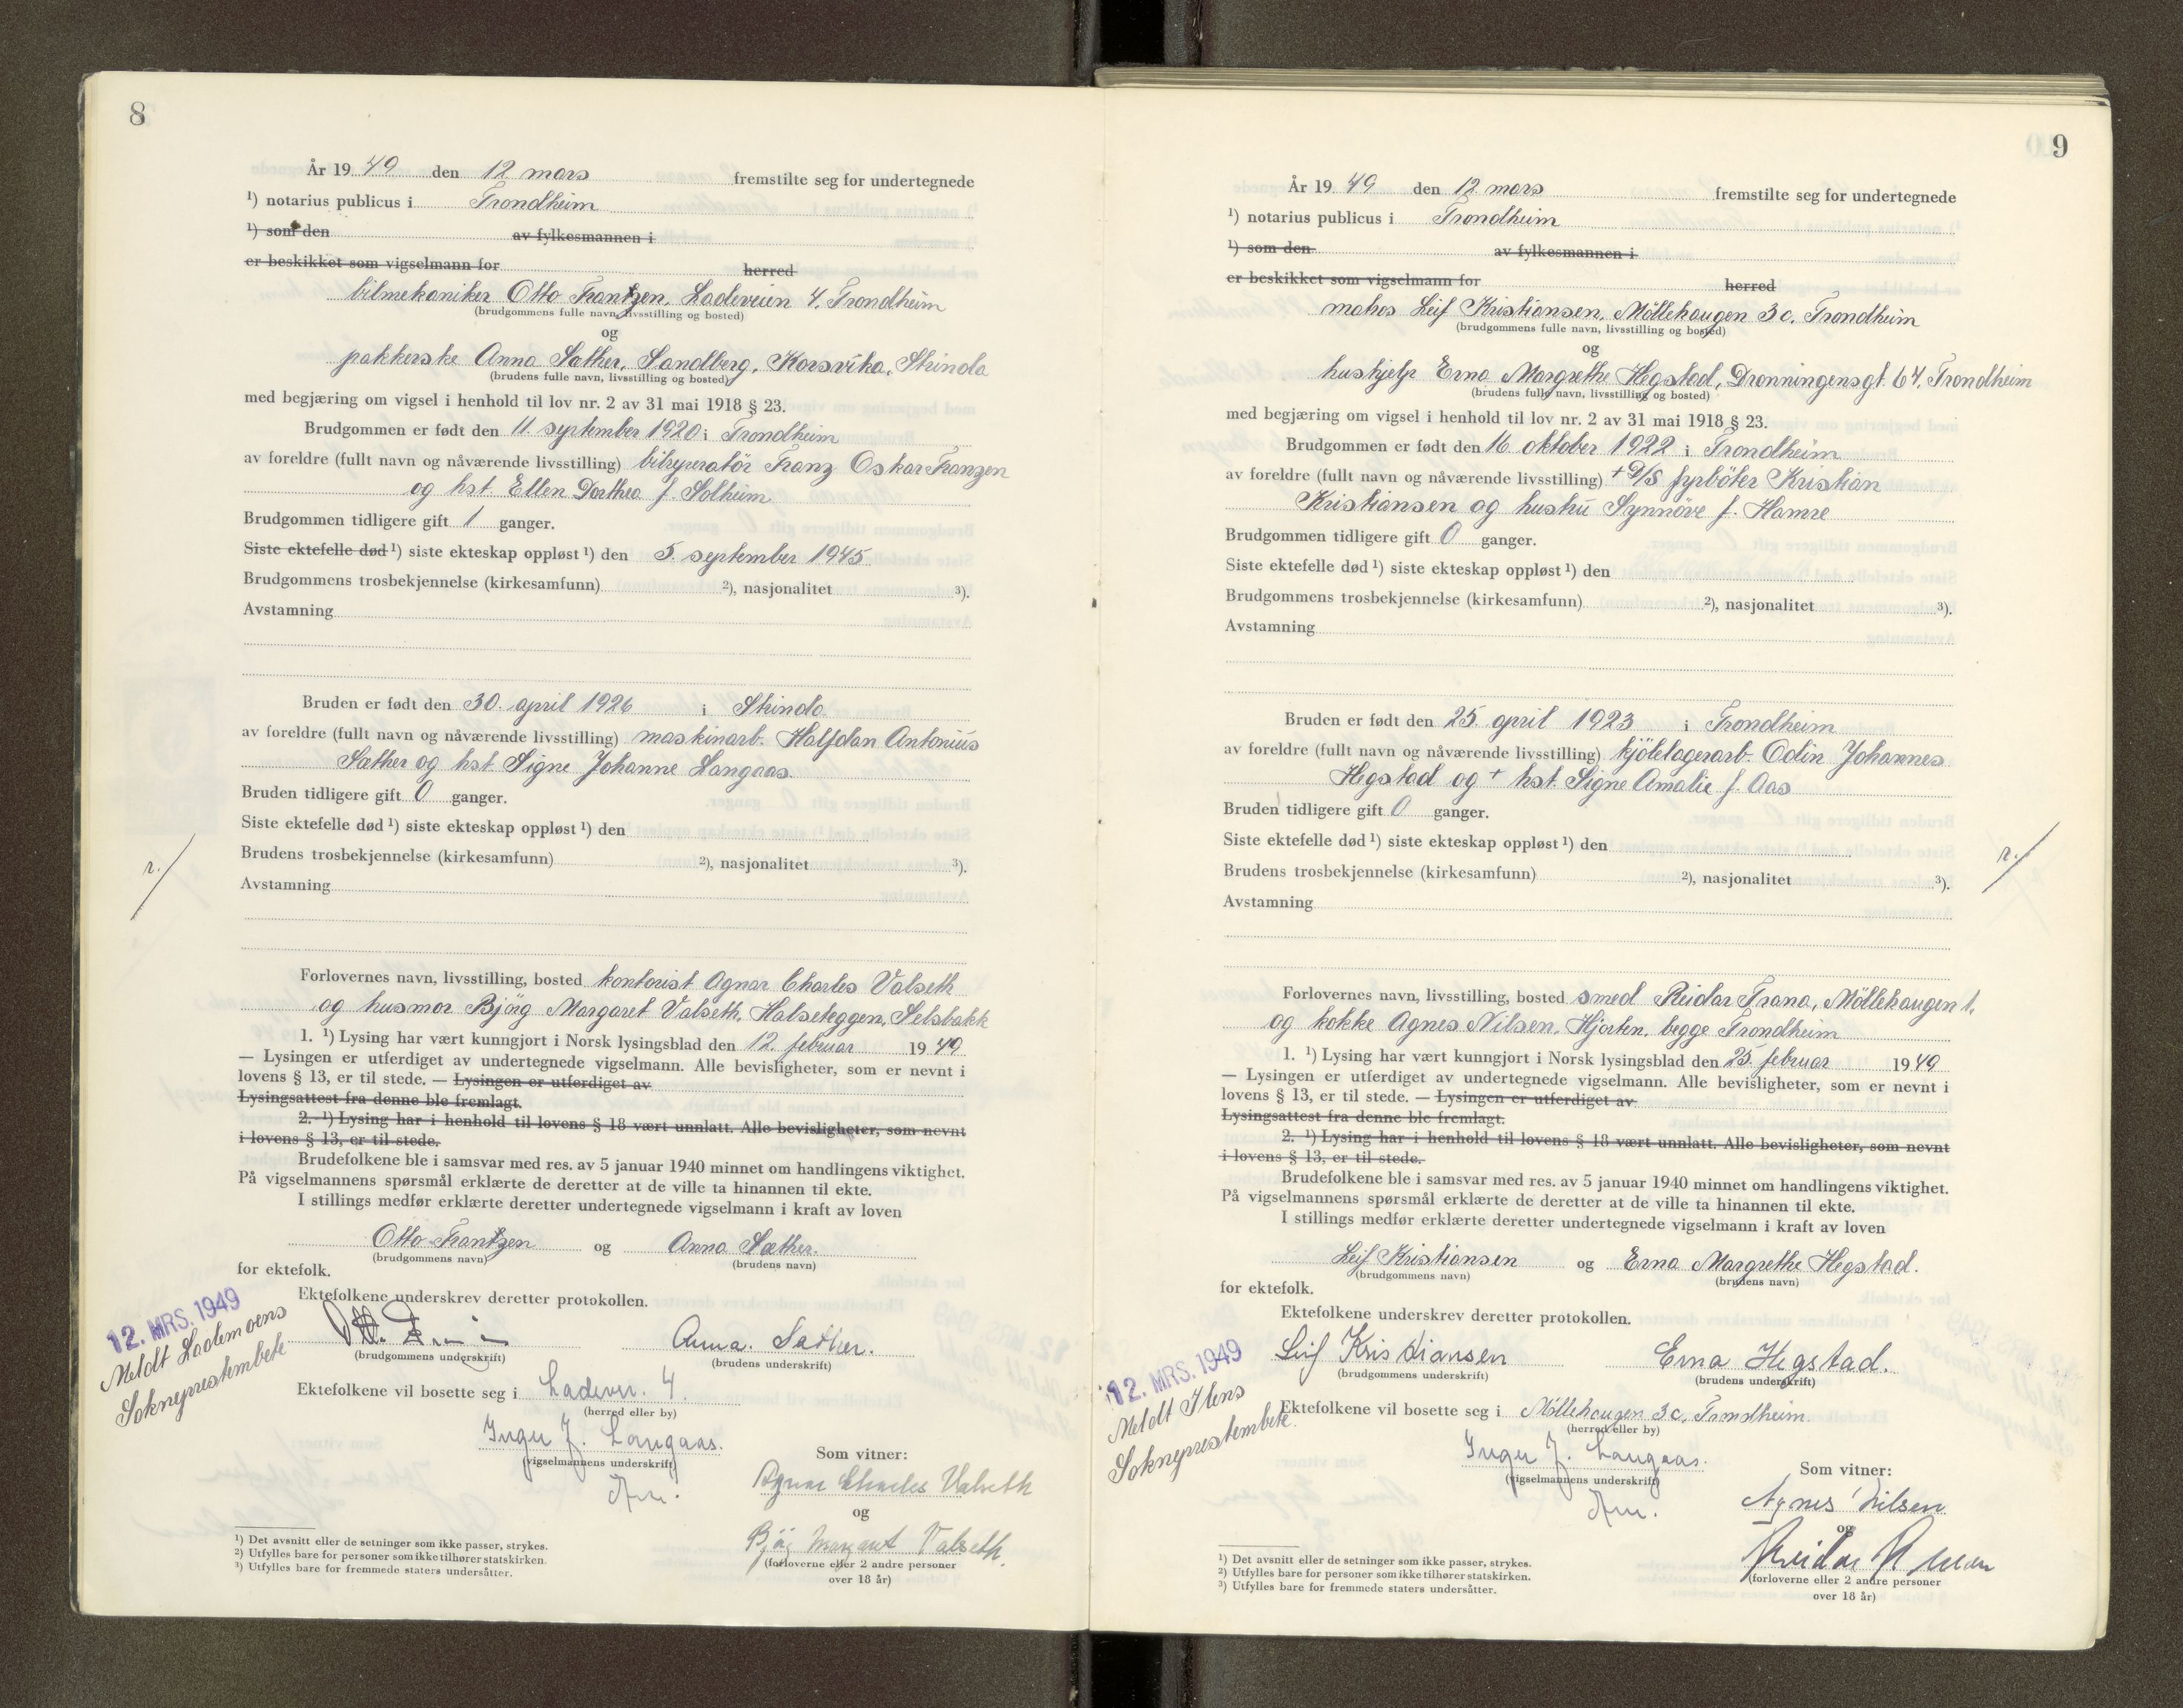 8
År 19 49 den 12 mars fremstilte seg for undertegnede
¹) notarius publicus i Trondheim
¹) som den av fylkesmannen i
er beskikket som vigselmann for herred
bilmekaniker Otto Frantzen, Ladeveien 4, Trondheim
(brudgommens fulle navn, livsstilling og bosted)
og
pakkerske Anna Sæther, Sandberg, Korsvika, Strinda
(brudens fulle navn, livsstilling og bosted)
med begjæring om vigsel i henhold til lov nr. 2 av 31 mai 1918 § 23.
Brudgommen er født den 11. september 1920 i Trondheim
av foreldre (fullt navn og nåværende livsstilling) bilreperatör Franz Oskar Franzen
og hst. Ellen Dorthea f. Solheim
Brudgommen tidligere gift 1 ganger.
Siste ektefelle død ¹) siste ekteskap oppløst ¹) den 5. september 1945
Brudgommens trosbekjennelse (kirkesamfunn) ²), nasjonalitet ³).
Avstamning
Bruden er født den 30. april 1926 i Strinda
av foreldre (fullt navn og nåværende livsstilling) maskinarb. Halfdan Antonius
Sæther og hst. Signe Johanne Langaas.
Bruden tidligere gift 0 ganger.
Siste ektefelle død ¹) siste ekteskap oppløst ¹) den
Brudens trosbekjennelse (kirkesamfunn) ²), nasjonalitet ³).
r./
Avstamning
Forlovernes navn, livsstilling, bosted kontorist Agnar Charles Valseth
og husmor Bjørg Margaret Valseth, Halseteggen, Selsbakk
1. ¹) Lysing har vært kunngjort i Norsk lysingsblad den 12. februar 19 49
— Lysingen er utferdiget av undertegnede vigselmann. Alle bevisligheter, som er nevnt i
lovens § 13, er til stede. — Lysingen er utferdiget av
Lysingsattest fra denne ble fremlagt.
2. ¹) Lysing har i henhold til lovens § 18 vært unnlatt. Alle bevisligheter, som nevnt
i lovens § 13, er til stede.
Brudefolkene ble i samsvar med res. av 5 januar 1940 minnet om handlingens viktighet.
På vigselmannens spørsmål erklærte de deretter at de ville ta hinannen til ekte.
I stillings medfør erklærte deretter undertegnede vigselmann i kraft av loven
Otto Frantzen og Anna Sæther.
(brudgommens navn) (brudens navn)
for ektefolk.
Ektefolkene underskrev deretter protokollen.
12. MRS. 1949
Meldt Lademoens
Sokneprestembete
Anna. Sæther.
(brudgommens underskrift) (brudens underskrift)
Ektefolkene vil bosette seg i Ladevei. 4.
(herred eller by)
Inger J. Langaas.
(vigselmannens underskrift)
Som vitner:
Agnar Charles Valseth
og
Bjørg Margaret Valseth.
(forloverne eller 2 andre personer
over 18 år)
¹) Det avsnitt eller de setninger som ikke passer, strykes.
²) Utfylles bare for personer som ikke tilhører statskirken.
³) Utfylles bare for fremmede staters undersåtter.
9
År 19 49 den 12 mars fremstilte seg for undertegnede
¹) notarius publicus i Trondheim
¹) som den av fylkesmannen i
er beskikket som vigselmann for herred
matros Leif Kristiansen, Möllehaugen 3c, Trondheim
(brudgommens fulle navn, livsstilling og bosted)
og
hushjelp Erna Margrethe Hegstad, Dronningensgt. 64, Trondheim
(brudens fulle navn, livsstilling og bosted)
med begjæring om vigsel i henhold til lov nr. 2 av 31 mai 1918 § 23.
Brudgommen er født den 16. oktober 1922 i Trondheim
av foreldre (fullt navn og nåværende livsstilling) + D/S fyrböter Kristian
Kristiansen og hustru Synnöve f. Hamre
Brudgommen tidligere gift 0 ganger.
Siste ektefelle død ¹) siste ekteskap oppløst ¹) den
Brudgommens trosbekjennelse (kirkesamfunn) ²), nasjonalitet ³).
Avstamning
Bruden er født den 25. april 1923 i Trondheim
av foreldre (fullt navn og nåværende livsstilling) kjölelagerarb. Odin Johannes
Hegstad og + hst. Signe Amalie f. Aas
Bruden tidligere gift 0 ganger.
Siste ektefelle død ¹) siste ekteskap oppløst ¹) den
Brudens trosbekjennelse (kirkesamfunn) ²), nasjonalitet ³).
r./
Avstamning
Forlovernes navn, livsstilling, bosted smed Reidar Trana, Möllehaugen 1,
og kokke Agnes Nilsen, Hjorten, begge Trondheim
1. ¹) Lysing har vært kunngjort i Norsk lysingsblad den 25. februar 19 49
— Lysingen er utferdiget av undertegnede vigselmann. Alle bevisligheter, som er nevnt i
lovens § 13, er til stede. — Lysingen er utferdiget av
Lysingsattest fra denne ble fremlagt.
2. ¹) Lysing har i henhold til lovens § 18 vært unnlatt. Alle bevisligheter, som nevnt
i lovens § 13, er til stede.
Brudefolkene ble i samsvar med res. av 5 januar 1940 minnet om handlingens viktighet.
På vigselmannens spørsmål erklærte de deretter at de ville ta hinannen til ekte.
I stillings medfør erklærte deretter undertegnede vigselmann i kraft av loven
Leif Kristiansen og Erna Margrethe Hegstad.
(brudgommens navn) (brudens navn)
for ektefolk.
Ektefolkene underskrev deretter protokollen.
12. MRS. 1949
Meldt Ilens
Sokneprestembete.
Leif Kristiansen Erna Hegstad.
(brudgommens underskrift) (brudens underskrift)
Ektefolkene vil bosette seg i Möllehaugen 3c, Trondheim.
(herred eller by)
Inger J. Langaas.
(vigselmannens underskrift)
Som vitner:
Agnes Nilsen
og
Reidar
(forloverne eller 2 andre personer
over 18 år)
¹) Det avsnitt eller de setninger som ikke passer, strykes.
²) Utfylles bare for personer som ikke tilhører statskirken.
³) Utfylles bare for fremmede staters undersåtter.